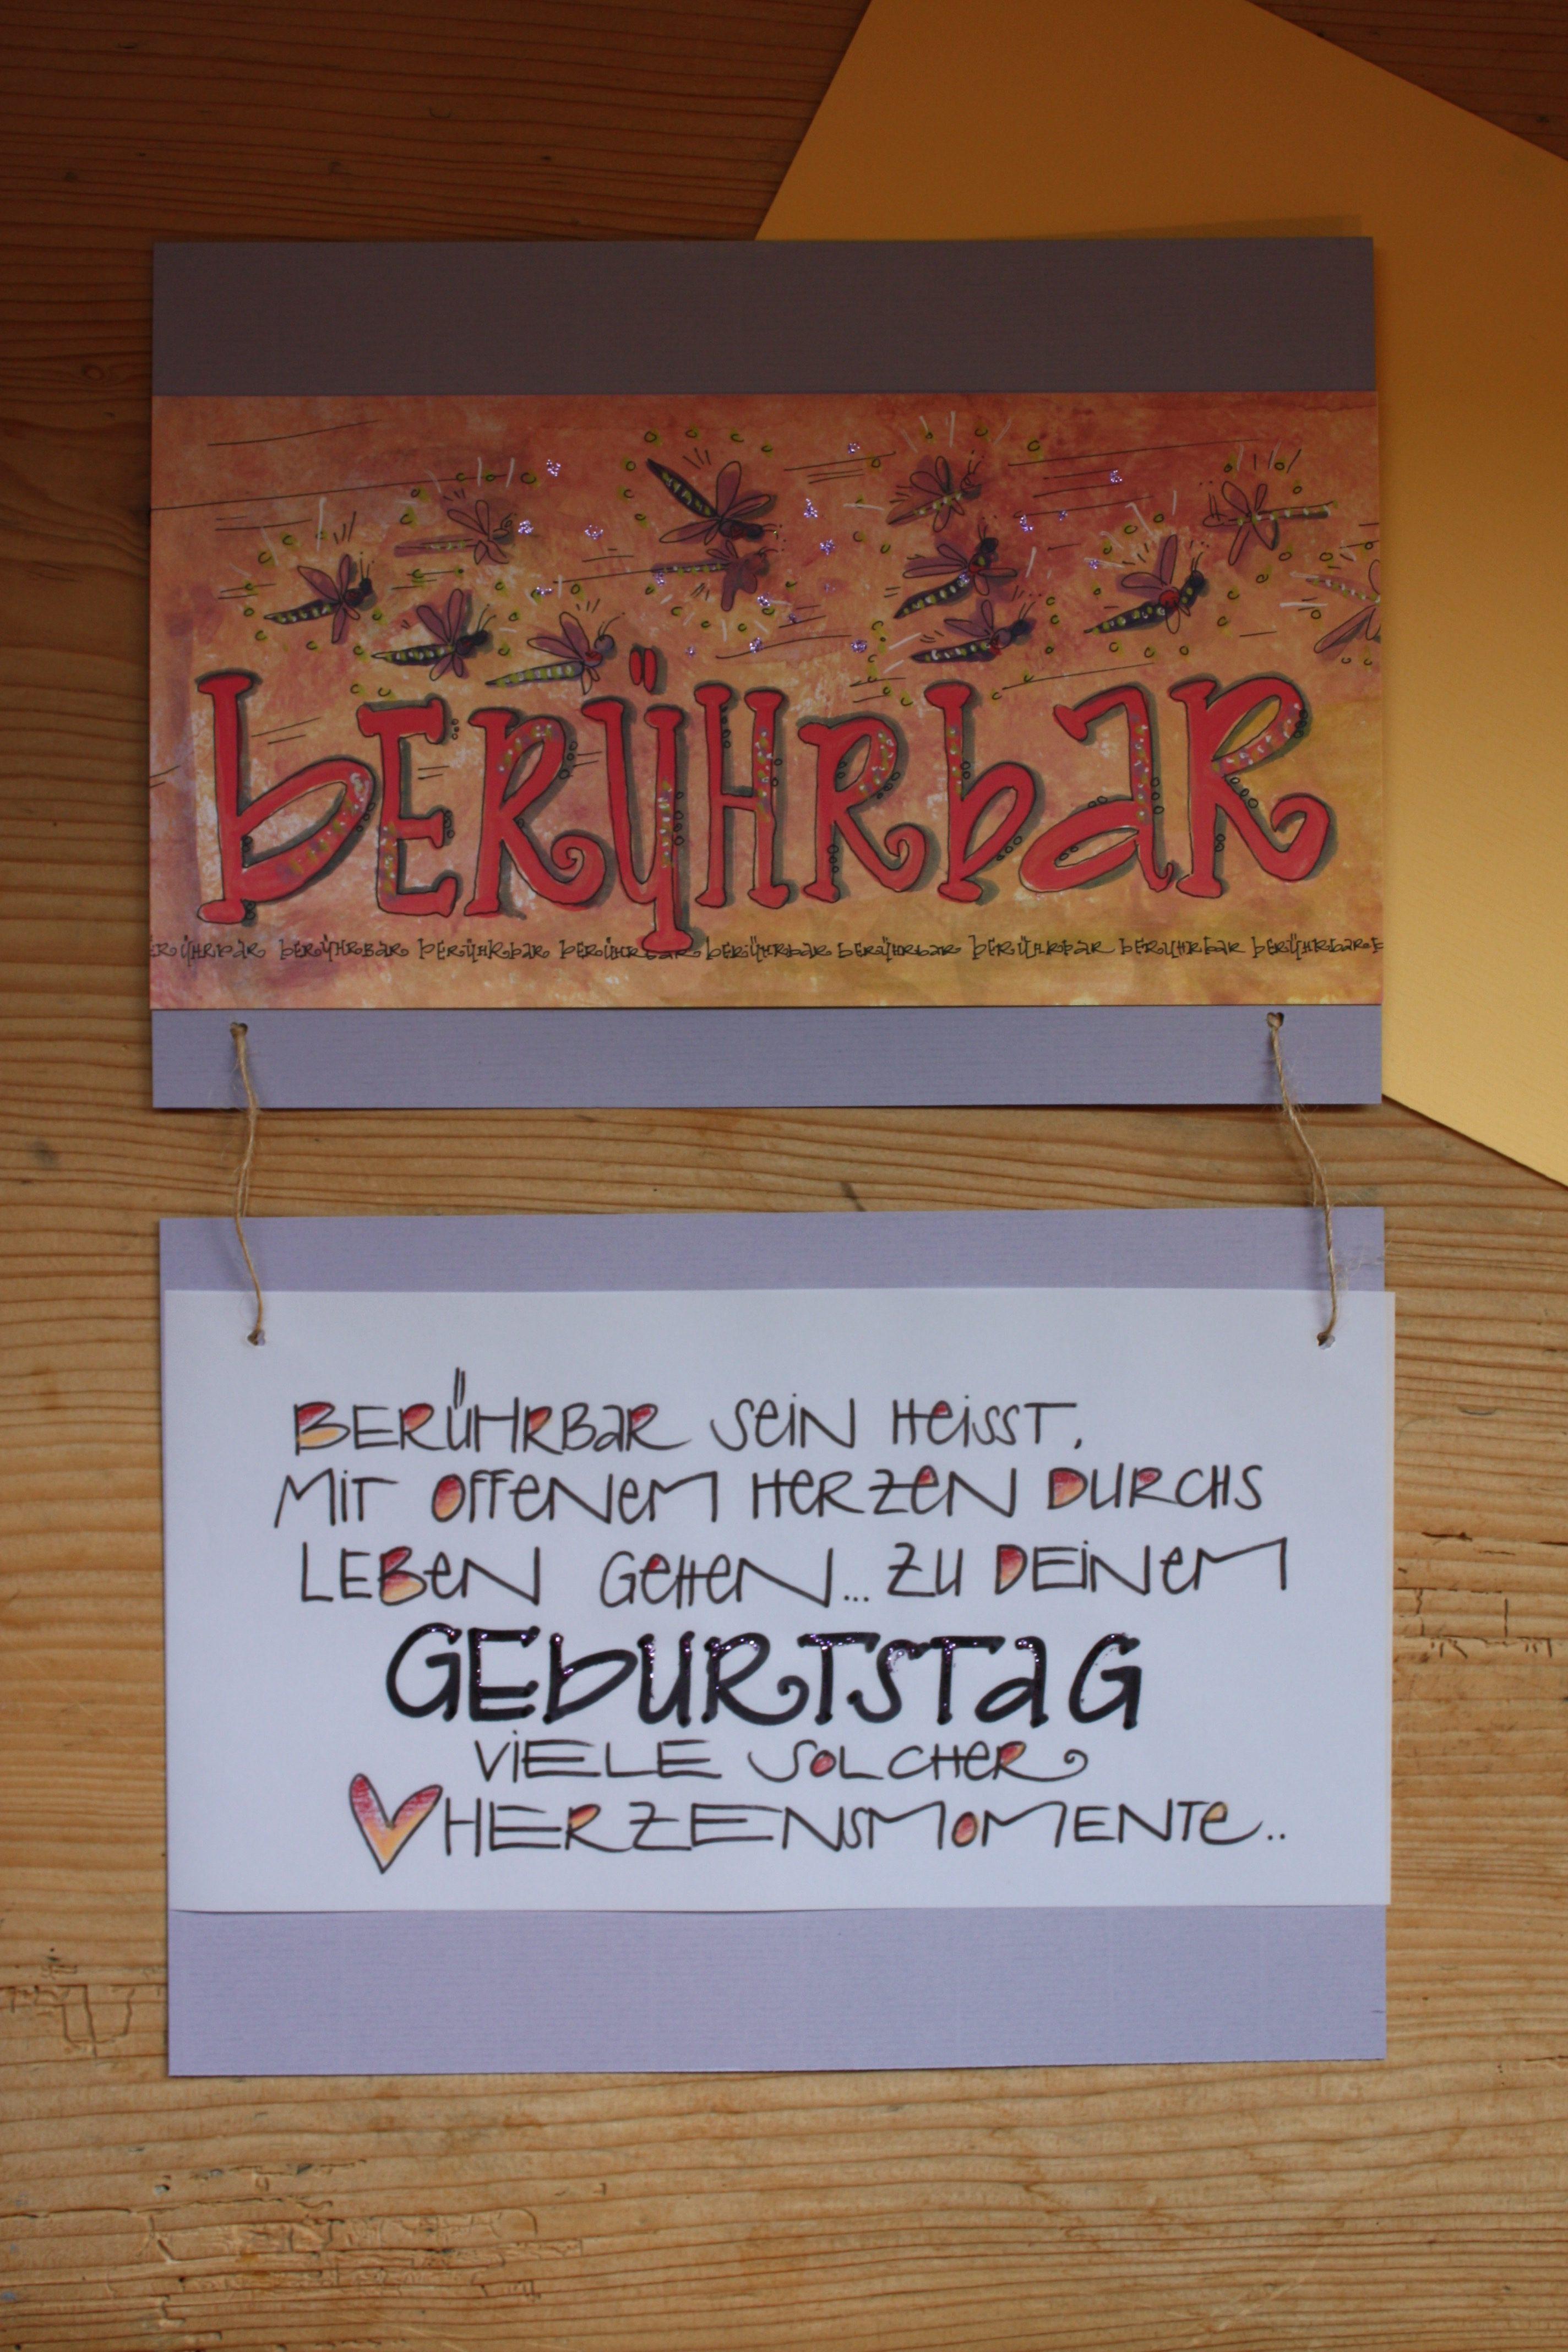 bERÜHRbaR
ERÜHRbaR bERÜHRBaR bERÜHRbaR bERÜHRbaR bERÜHRbaR bERÜHRbaR bERÜHRbaR bERÜHRbaR bERÜHRbaR
BERÜHRBaR SeiN HeissT,
MiT OFFeNeM HeRZeN DURCHS
LEBeN GeHeN... ZU DEiNeM
GEbURTSTaG
ViELE SOLCHeR
HERZENSMOMENTe..